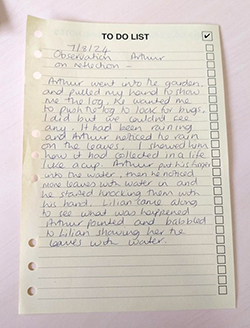 TO DO LIST
7/3/24
Observation Arthur
on reflection -
Arthur went into the garden
and pulled my hand to show
me the log. He wanted me
to push the log to look for bugs.
I did but we couldn't see
any. It had been raining
and Arthur noticed the rain
on the leaves. I showed him
how it had collected in a life
like a cup. Arthur put his finger
into the water, then he noticed
more leaves with water in and
he started knocking them with
his hand. Lilian came along
to see what was happened
Arthur pointed and babbled
to Lilian showing her the
leaves with water.